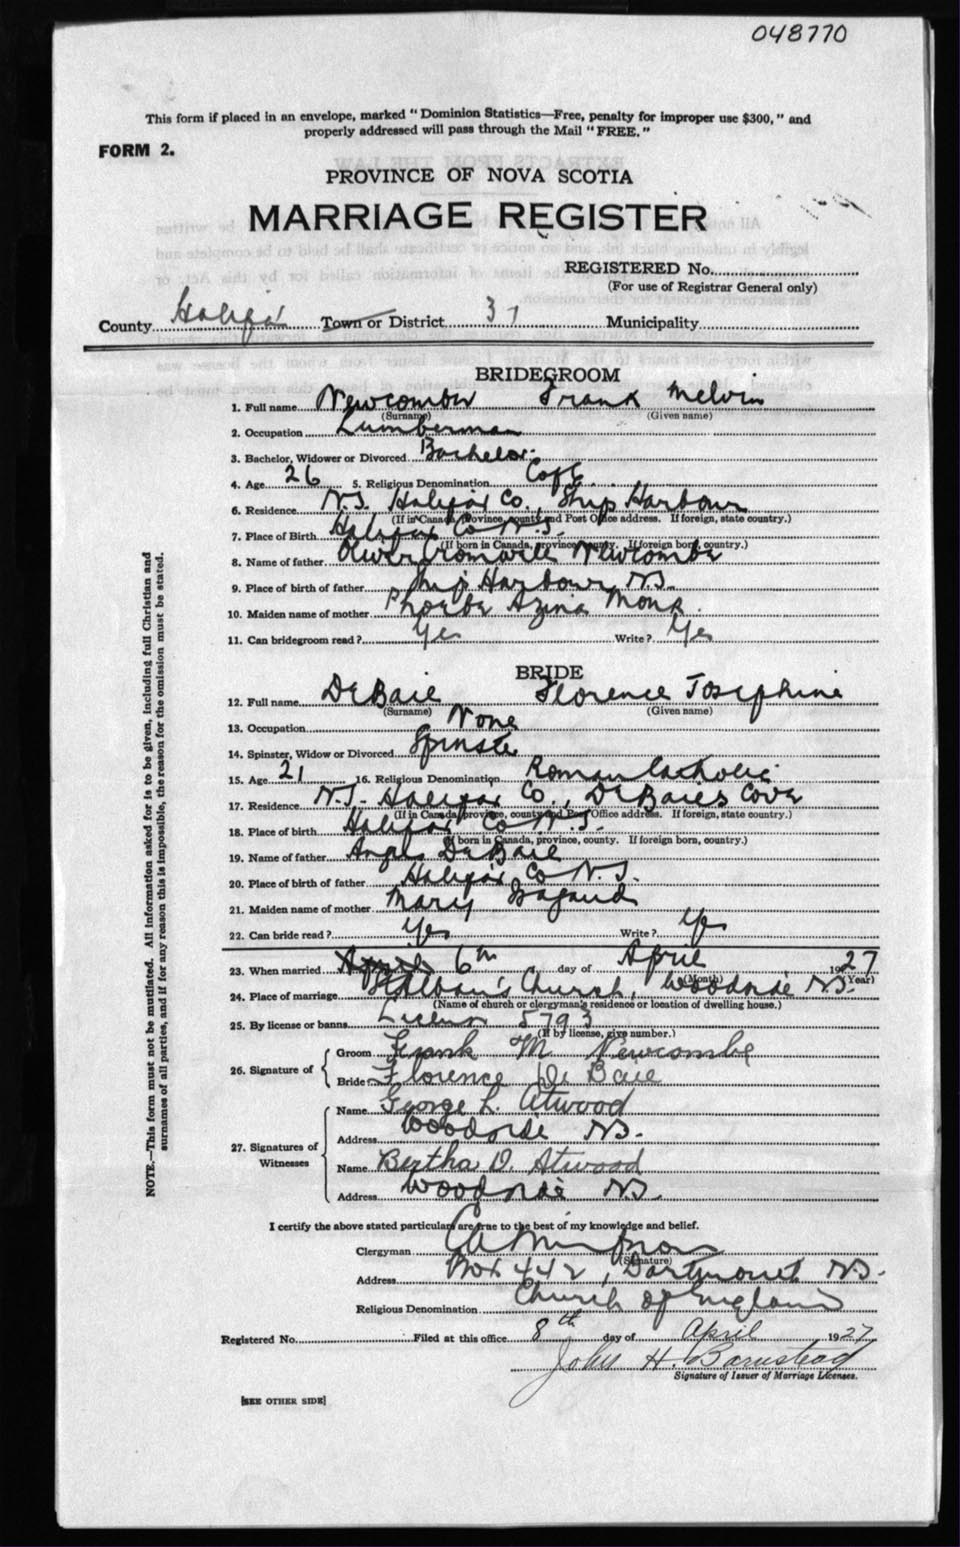 048770
This form if placed in an envelope, marked "Dominion Statistics—Free, penalty for improper use $300," and
properly addressed will pass through the Mail "FREE."
FORM 2.
PROVINCE OF NOVA SCOTIA
MARRIAGE REGISTER
REGISTERED No.
(For use of Registrar General only)
County Halifax Town or District 37 Municipality
BRIDEGROOM
1. Full name Newcombe Frank Melvin
(Surname) (Given name)
2. Occupation Lumberman
3. Bachelor, Widower or Divorced Bachelor
4. Age 26 5. Religious Denomination C of E
6. Residence N.S. Halifax Co., Ship Harbour
(If in Canada, province, county and Post Office address. If foreign, state country.)
7. Place of Birth Halifax Co N.S.
(If born in Canada, province, county. If foreign born, country.)
8. Name of father Oliver Cromwell Newcombe
9. Place of birth of father Ship Harbour N.S.
10. Maiden name of mother Phoebe Azina Monk
11. Can bridegroom read? Yes Write? Yes
BRIDE
12. Full name DeBaie Florence Josephine
(Surname) (Given name)
13. Occupation None
14. Spinster, Widow or Divorced Spinster
15. Age 21 16. Religious Denomination Roman Catholic
17. Residence N.S. Halifax Co., DeBaies Cove
(If in Canada, province, county and Post Office address. If foreign, state country.)
18. Place of birth Halifax Co N.S.
(If born in Canada, province, county. If foreign born, country.)
19. Name of father DeBaie
20. Place of birth of father Halifax Co N.S.
21. Maiden name of mother Mary
22. Can bride read? Yes Write? Yes
23. When married 6th day of April 1927
(Month) (Year)
24. Place of marriage St Alban's Church, Woodside N.S.
(Name of church or clergyman's residence or location of dwelling house.)
25. By license or banns License 5793
(If by license, give number.)
26. Signature of
Groom Frank M Newcombe
Bride Florence De Baie
27. Signatures of Witnesses
Name George L. Atwood
Address Woodside N.S.
Name Bertha D. Atwood
Address Woodside N.S.
I certify the above stated particulars are true to the best of my knowledge and belief.
Clergyman
(Signature)
Address Box 442, Dartmouth N.S.
Religious Denomination Church of England
Registered No. Filed at this office 8th day of April 1927
John H. Barnstead
Signature of Issuer of Marriage Licenses.
[SEE OTHER SIDE]
NOTE.—This form must not be mutilated. All information asked for is to be given, including full Christian and
surnames of all parties, and if for any reason this is impossible, the reason for the omission must be stated.